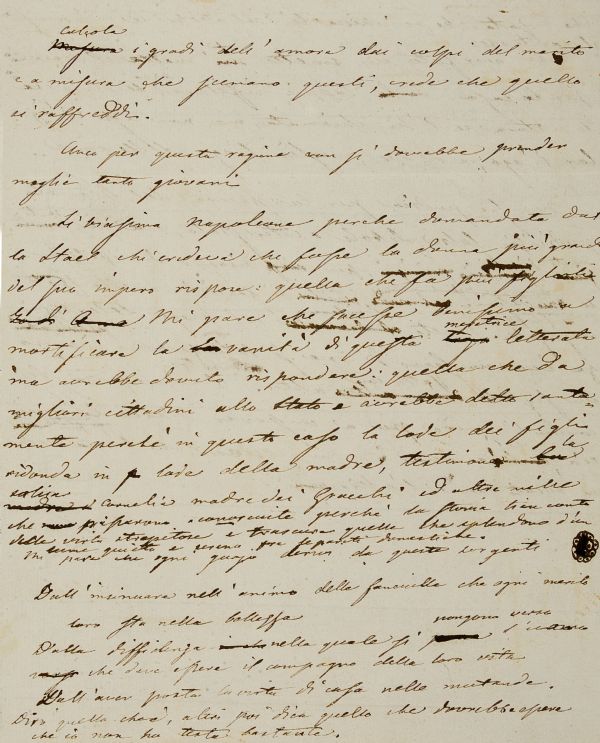 calcola
i gradi dell' amore dai colpi del marito
e a misura che scemano questi, crede che quello
si raffreddi.
Anco per questa ragione non si dovrebbe prender
moglie tanto giovani
Napoleone perché domandato dal
la Stael chi credeva che fosse la donna più grande
del suo impero rispose: quella che fa più figli
Mi pare che facesse benissimo a
mortificare la vanità di questa letterata
ma avrebbe dovuto rispondere: quella che dà
migliori cittadini allo Stato e avrebbe detto santa
mente perché in questo caso la lode dei figli
ridonda in lode della madre, testimone la
Cornelia madre dei Gracchi ed altre mille
che conosciute perché la storia tien conto
delle virtù strepitose e trascura quelle che splendono d'un
lume quieto e sereno fra le pareti domestiche.
Mi pare che ogni guajo derivi da queste sorgenti
Dall' insinuare nell' animo della fanciulla che ogni merito
loro sta nella bellezza
Dalla diffidenza nella quale si pongono verso l'uomo
che deve essere il compagno della loro vita
Dall' aver posta la virtù di casa nelle mutande.
Dico quello che è, altri poi dica quello che dovrebbe essere
che io non ho testa bastante.